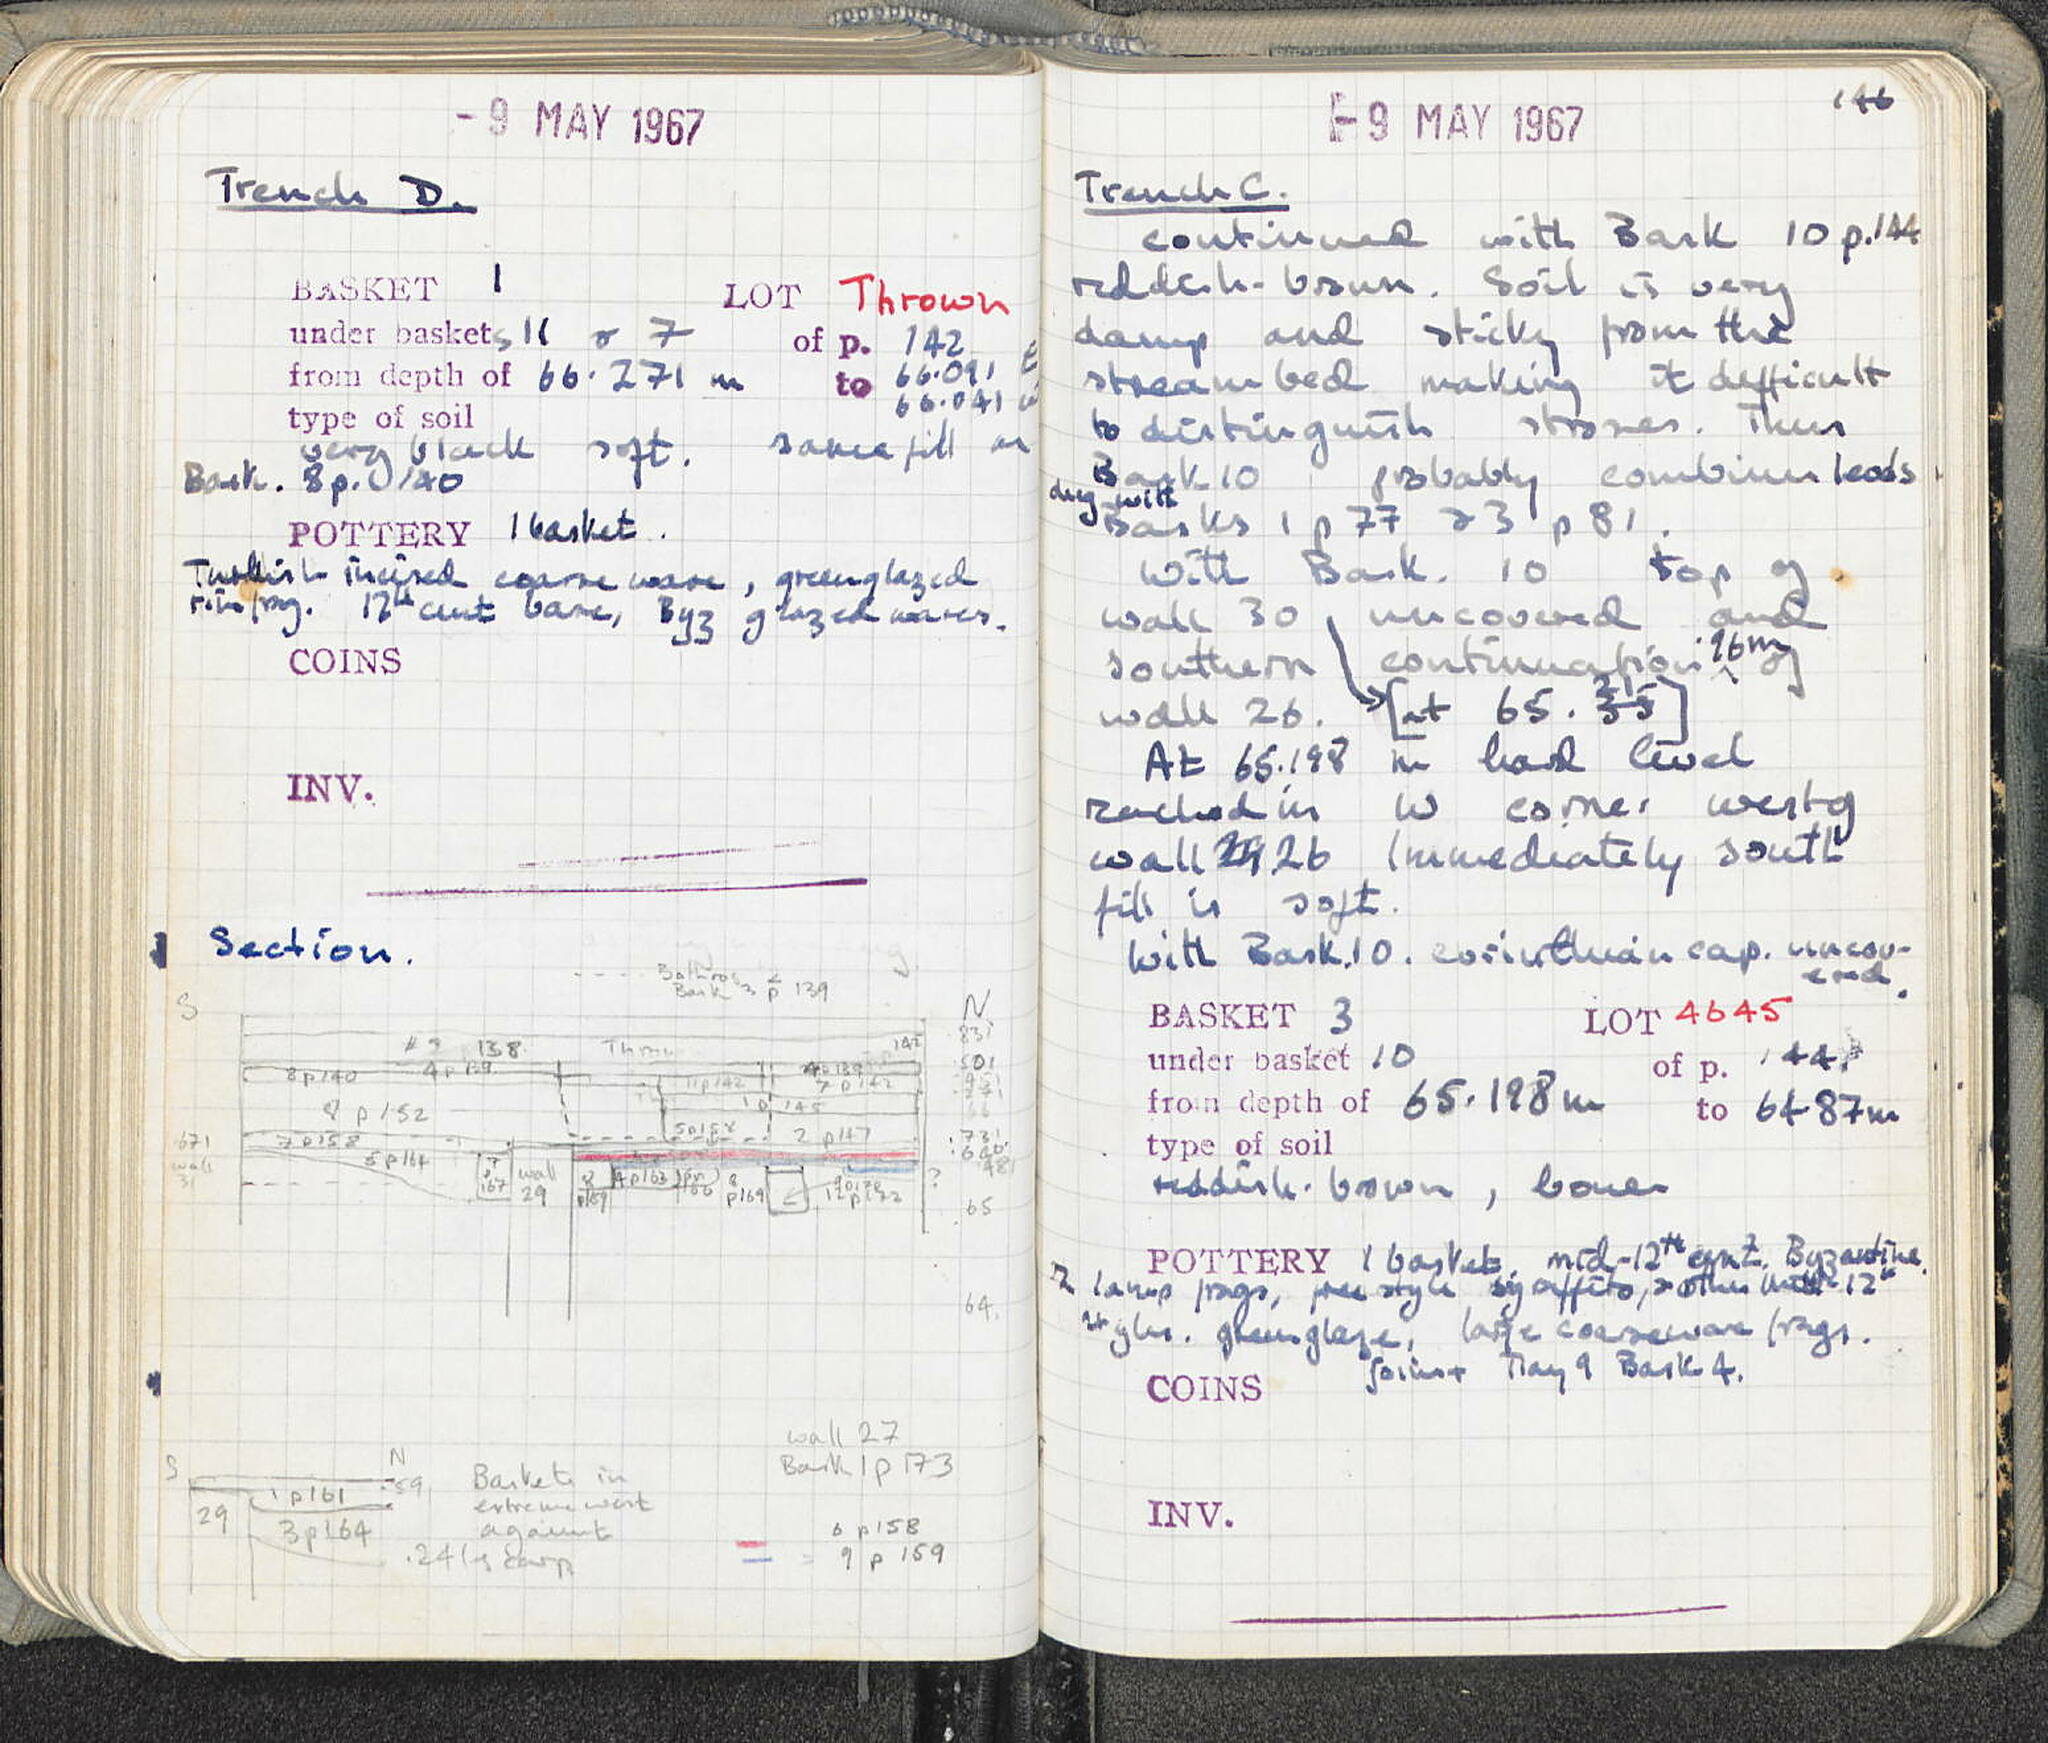 - 9 MAY 1967
Trench D.
BASKET 1 LOT Thrown
under baskets 11 & 7 of p. 142
from depth of 66.271 m to 66.091 E
66.041 W
type of soil
very black soft. same fill as
Bask. 8 p. 140
POTTERY 1 basket.
Turkish incised coarse ware, green glazed
rim frag. 12th cent base, Byz glazed wares.
COINS
INV.
Section.
Bothros
Bask 3 p 139
S N
831
# 9 138 Thrown 142
501
8 p 140 4 p 139 11 p 142 7 p 142
271
8 p 152 1 p 145
5 p 158 2 p 147
731
671 7 p 158
wall 5 p 164
31
7 p 167 wall 29 4 p 163 8 p 169 ?
65
64.
wall 27
Bask 1 p 173
S N
1 p 161 .59
29 3 p 164
.241
Baskets in
extreme west
against
scarp
6 p 158
= 9 p 159
- 9 MAY 1967
146
Trench C.
continued with Bask 10 p.144
reddish-brown. Soil is very
damp and sticky from the
stream bed making it difficult
to distinguish stroses. Thus
Bask 10 probably combines leads
dug with
Basks 1 p 77 & 3 p 81.
With Bask. 10 top of
wall 30 uncovered and
southern continuation .96m of
wall 26. [at 65.
At 65.198 m hard level
reached in W corner west of
wall 26 Immediately south
fill is soft.
With Bask. 10. corinthian cap. uncov-
ered.
BASKET 3 LOT 4645
under basket 10 of p. 144
from depth of 65.198m to 64.87m
type of soil
reddish-brown, bones
POTTERY 1 basket. mid-12th cent. Byzantine.
2 lamp frags, free style sgraffito, & other mid-12th
styles. green glaze, large coarseware frags.
Joins + May 9 Bask 4.
COINS
INV.